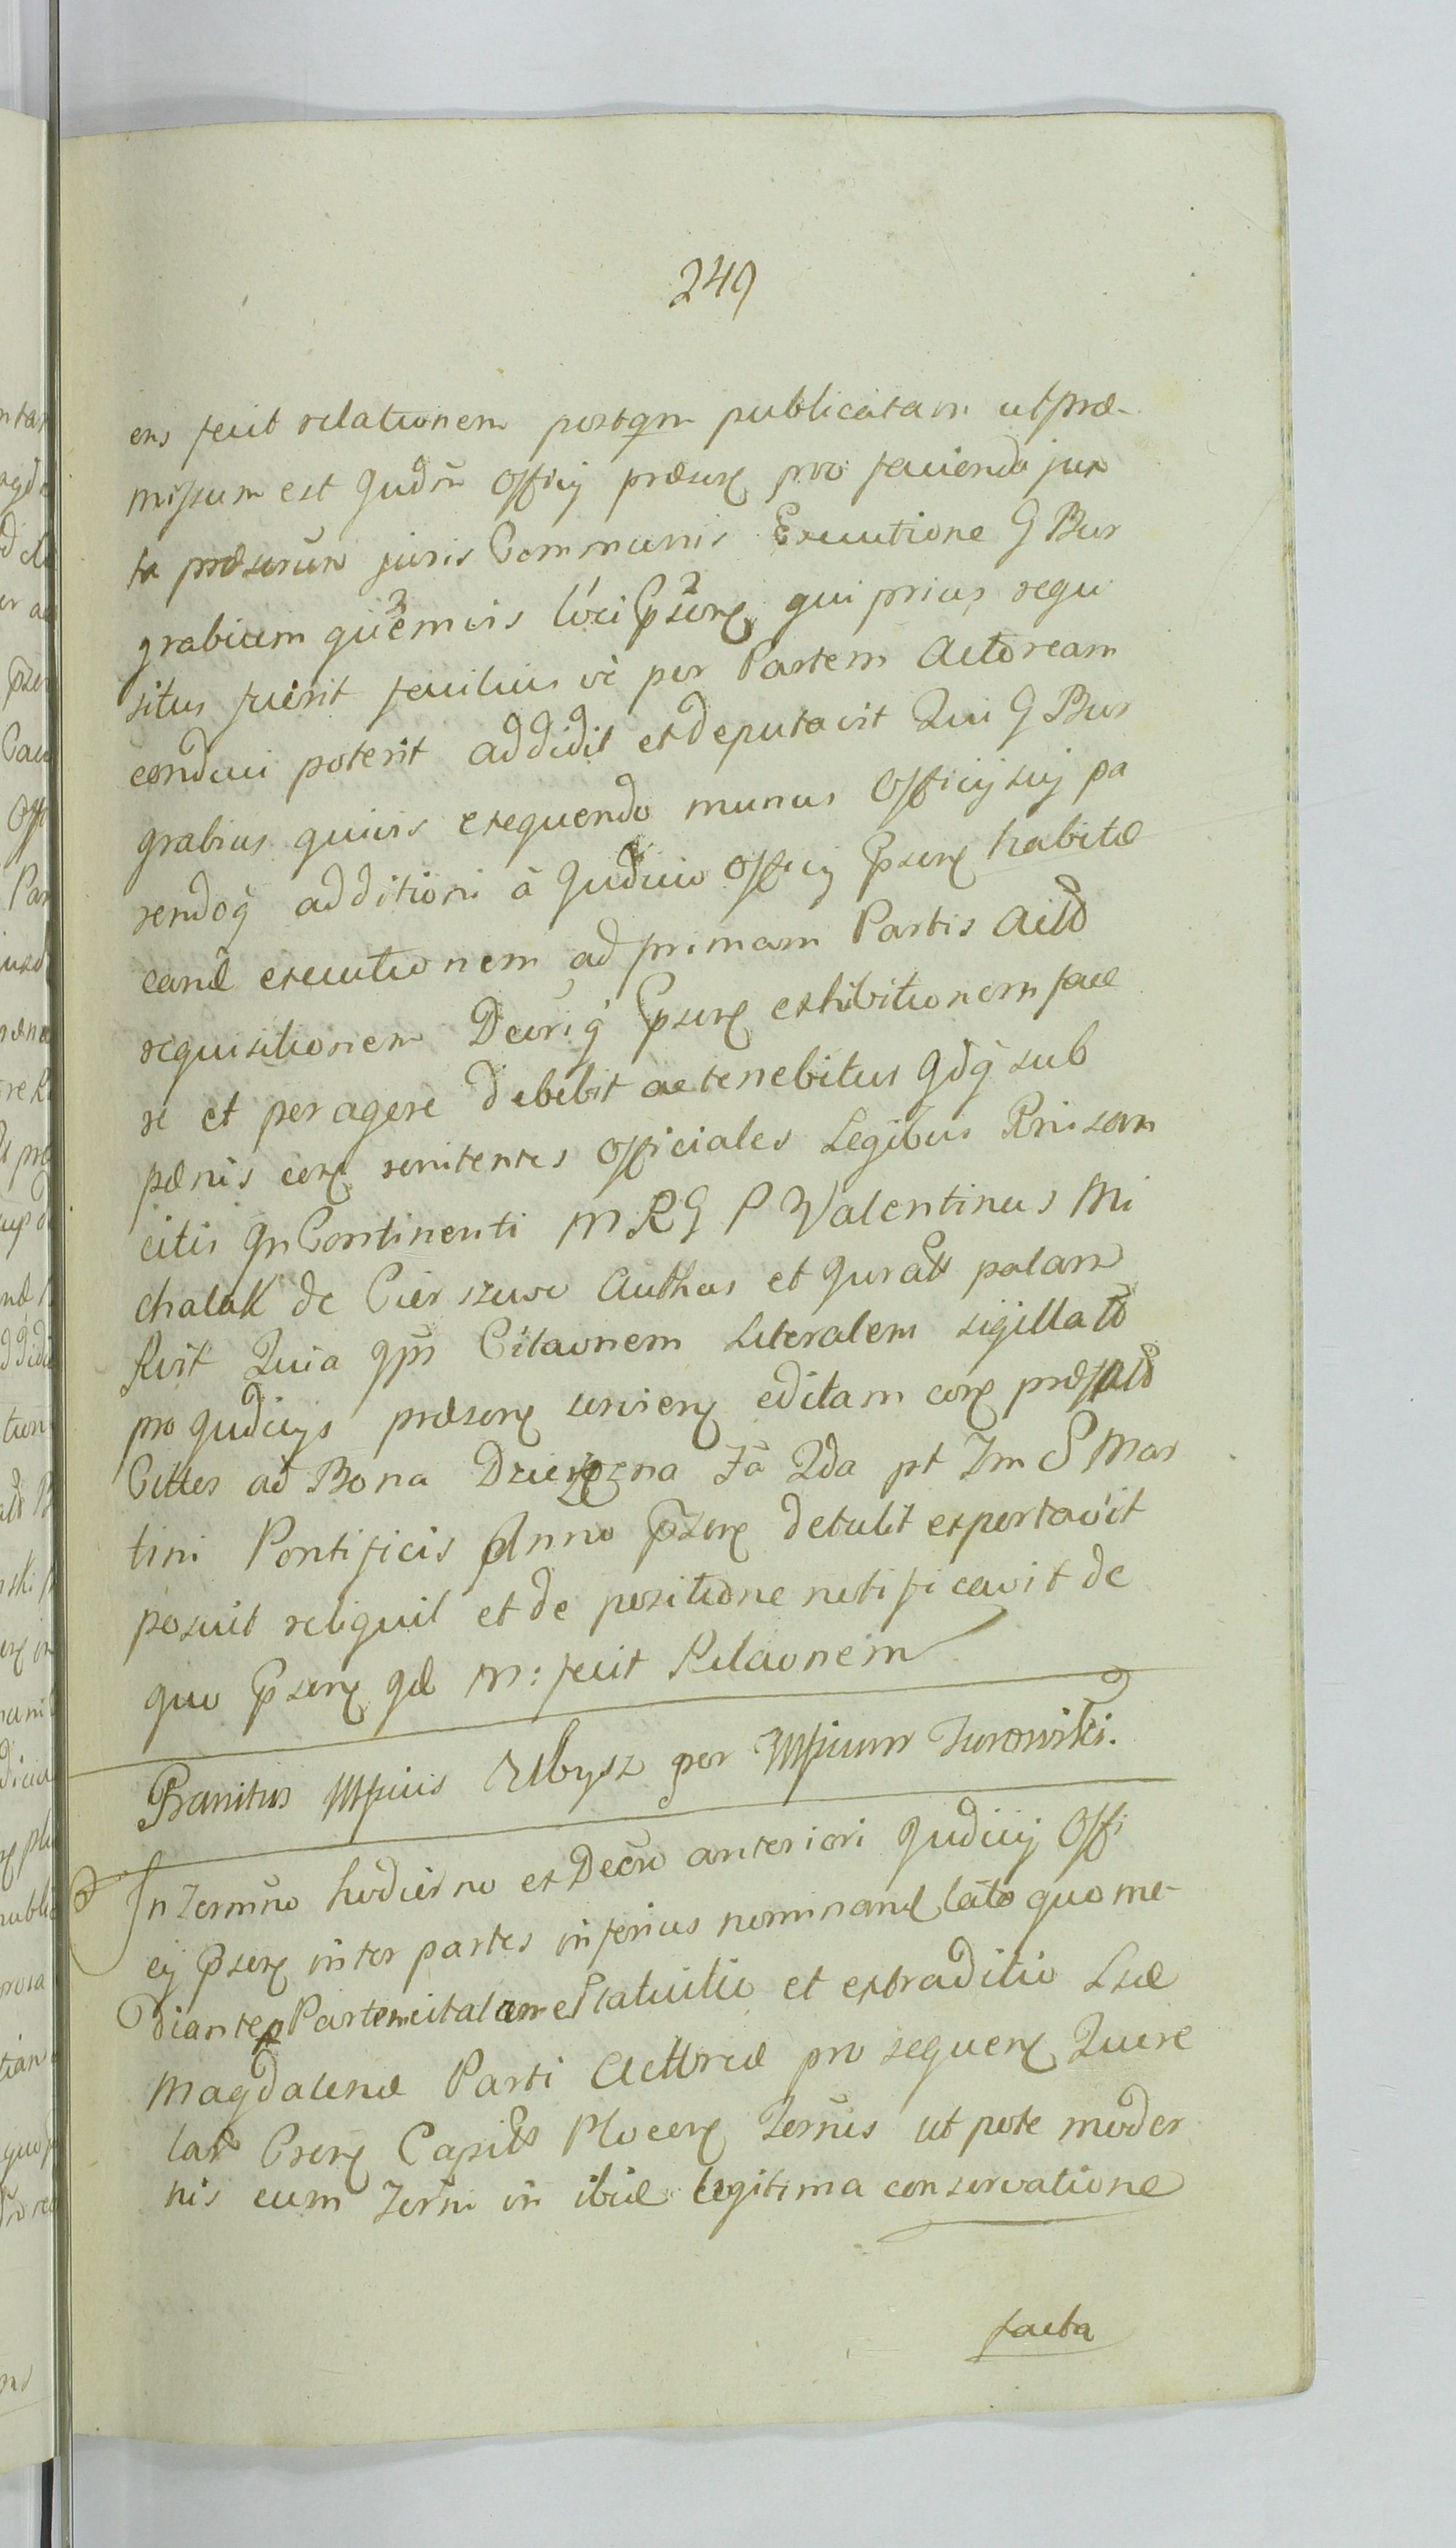 249
ens fecit relationem postqm publicatam ut præ-
missum est Judm Officij præsens pro facienda jux
ta præscrum juris Communis Executione G Bur
grabium quemvis loci Pñs qui prius requi
situs fuerit facilius vè per Partem Actoream
conduci poterit addidit et deputavit Qui G Bur
grabius quivis exequendo munus Officij suj pa
rendoq additioni à Judicio Officij Pñs habitæ
eand executionem ad primam Partis Acto
requisitionem Decriq Pñs exhibitionem face
re et peragere debebit ac tenebitur Idq sub
pænis con renitentes Officiales Legibus Rni san
citis In Continenti M R G P Valentinus Mi
chalak de Cierszewo Authus et Juratt palam
Rvit Quia ipse Citaonem Literalem sigillatt
pro Judicijs præsen servien editam con præfatt
Cittes ad Bona Dzierżązna Fa 2da pt Fm S Mar
tini Pontificis Anno Pñs detulit exportavit
posuit reliquit et de positione notificavit de
quo Pñs id M: fecit Relaonem
Banitus Mfcus Zbysz per Mfcum Turowski.
In Termno hodierno ex Decro anteriori Judicij Offi
cij Pñs inter partes inferius nominand lato quo me-
diante p Partem citatam Statuitio et extraditio Lsæ
Magdalenæ Parti Actoreæ pro sequen Quere
lar Cren Capitts Plocen Ternis ut pote moder
nis cum Terni in ibid legitima conservatione
facta